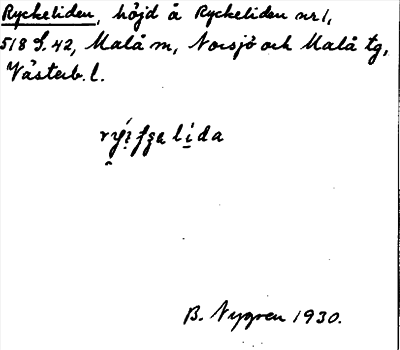 Ryckeliden, höjd å Ryckeliden nr 1,
518 S. 42, Malå m, Norsjö och Malå tg,
Västerb. l.
B. Nygren 1930.